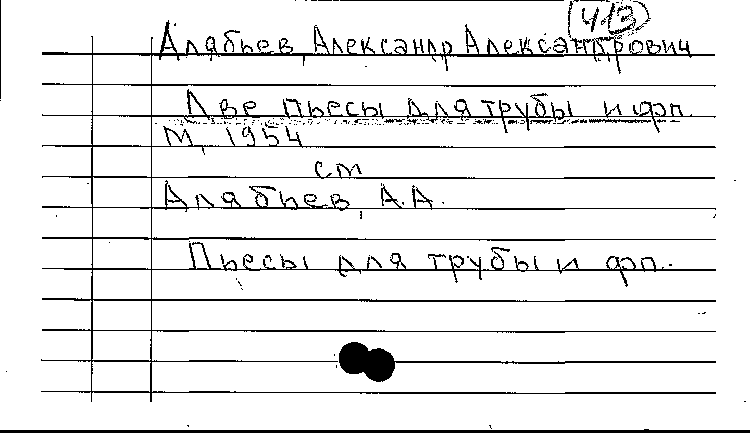 413
Алябьев, Александр Александрович
Две пьесы для трубы и фп.
М, 1954
см
Алябьев, А.А.
Пьесы для трубы и фп.